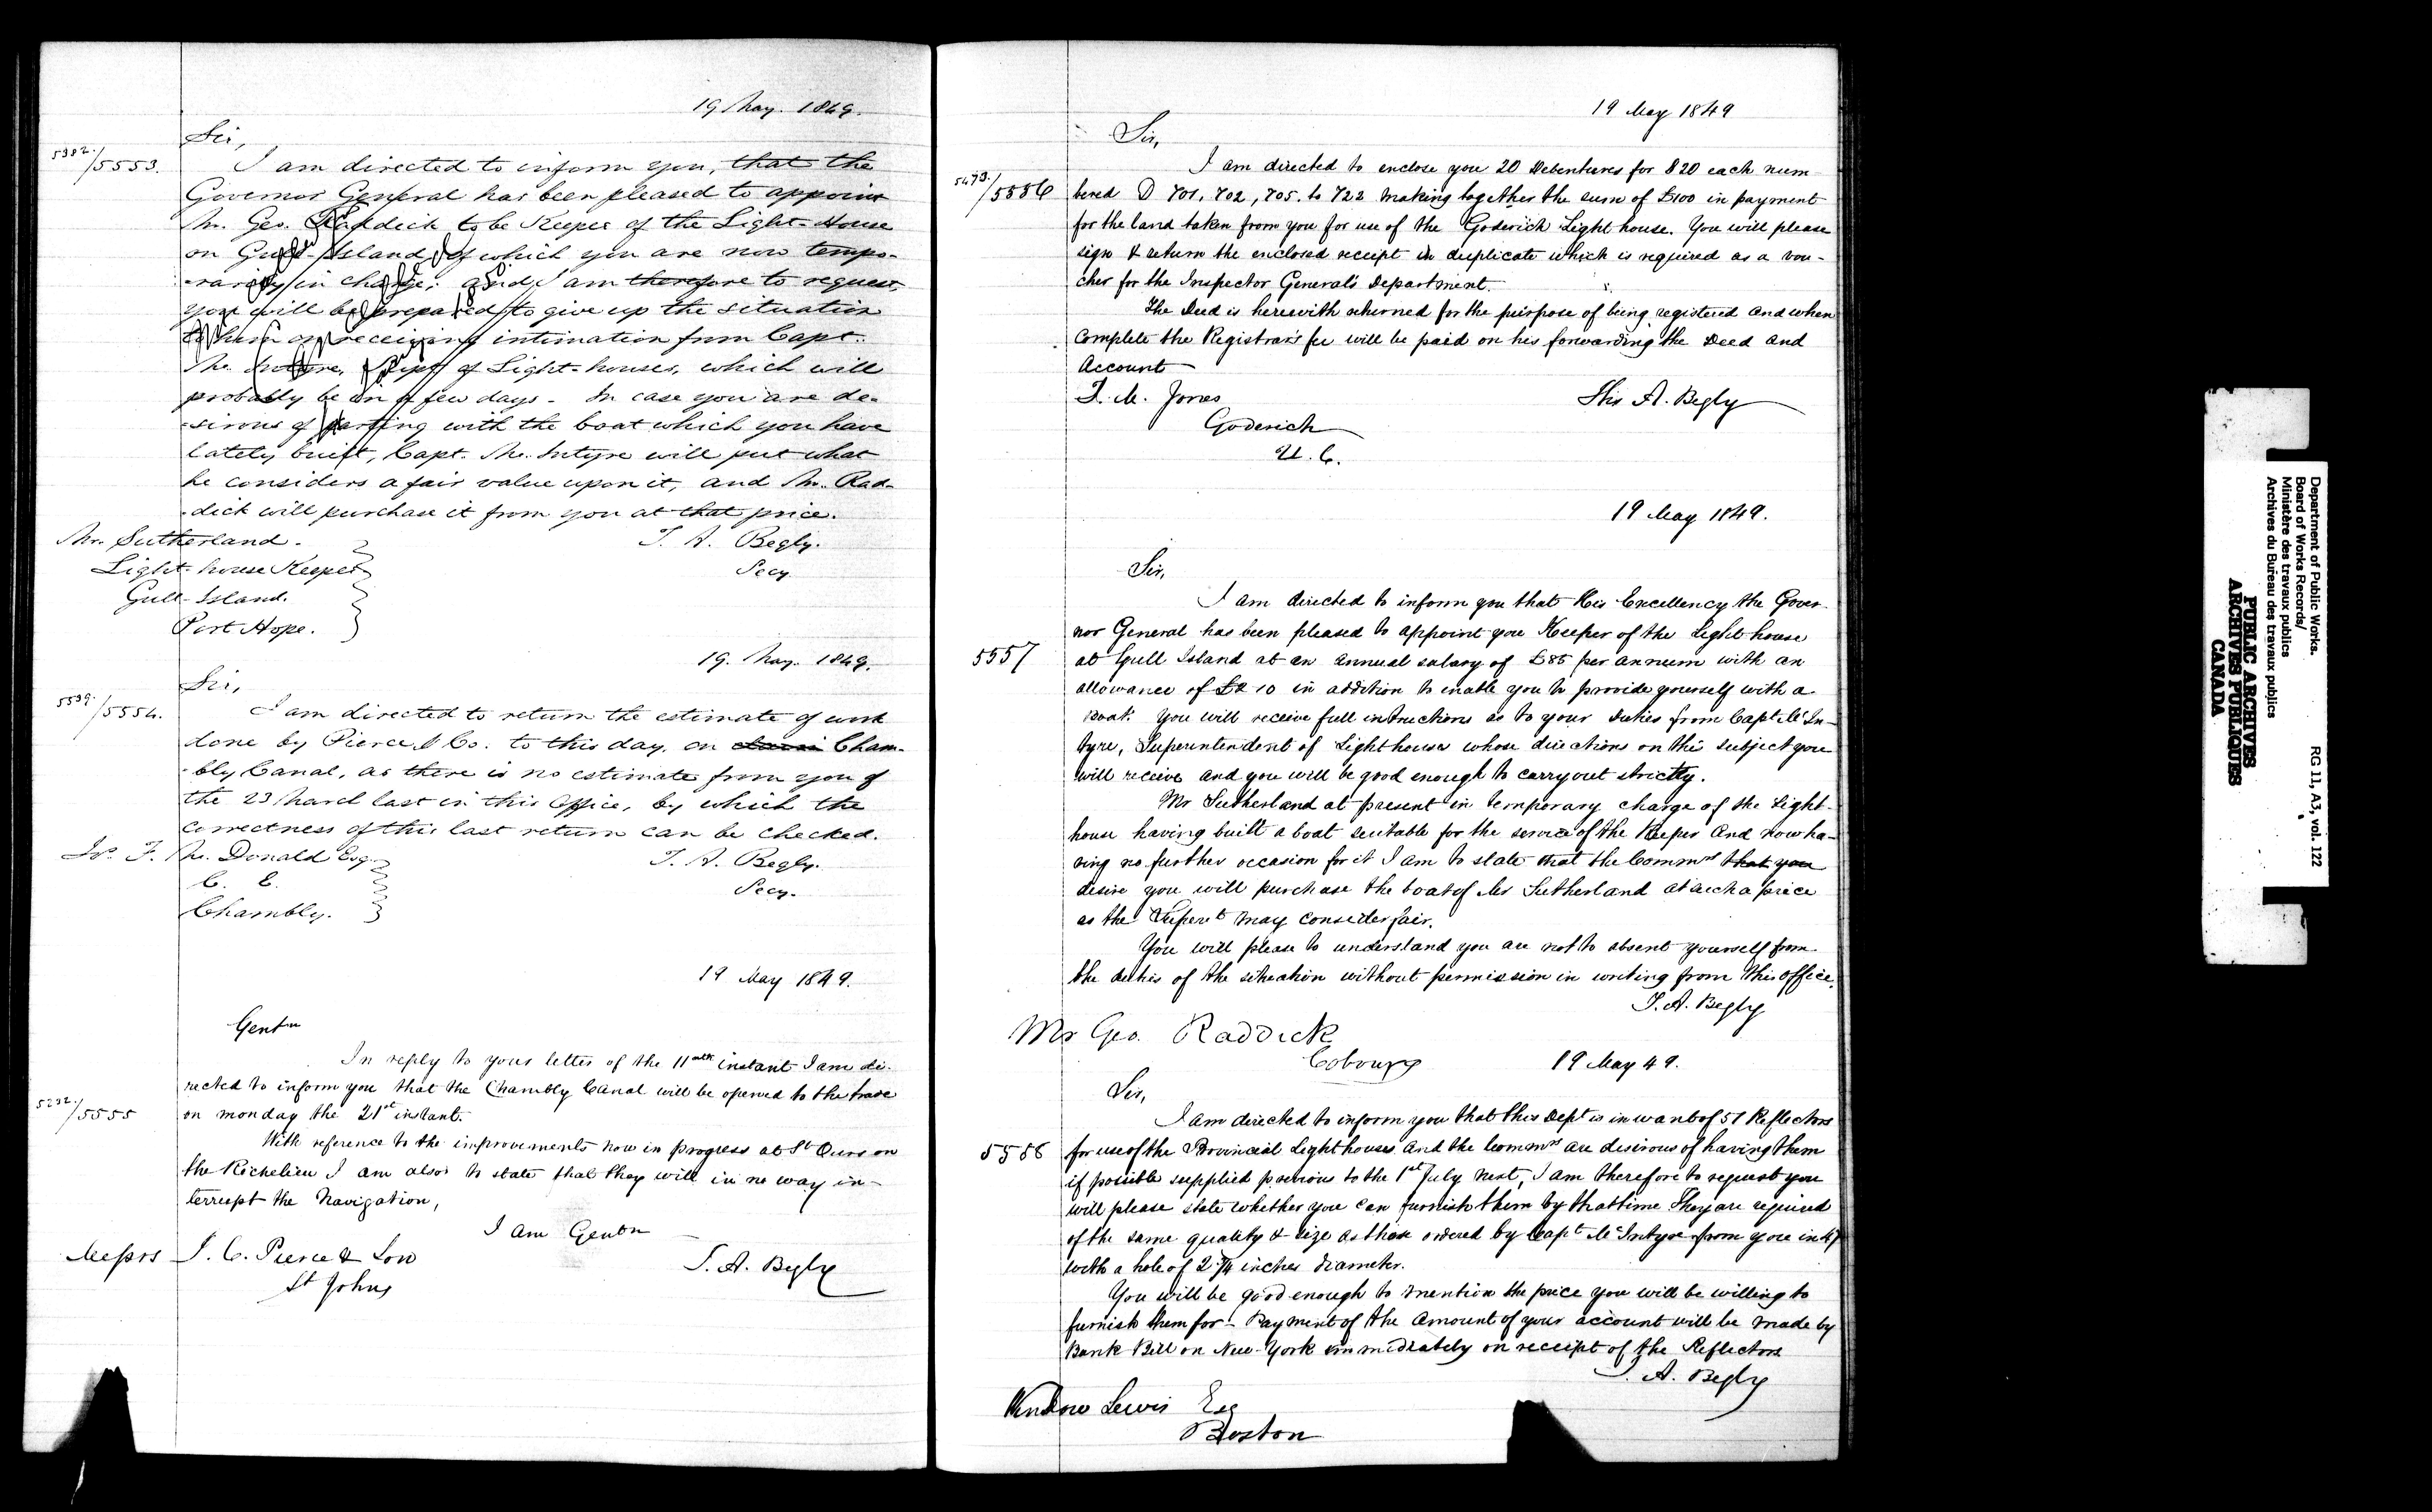 19 May. 1849.
Sir,
5382./5553.
I am directed to inform you, that the
Governor General has been pleased to appoint
Mr. Geo. Raddick to be Keeper of the Light-House
on Gull-Island, of which you are now tempo-
-rarily in charge; and I am therefore to request,
you will be prepared to give up the situation
to him on receiving intimation from Capt.
Mc Intyre, Supt of Light-houses, which will
probably be in a few days - In case you are de-
-sirous of parting with the boat which you have
lately built, Capt. Mc Intyre will put what
he considers a fair value upon it, and Mr. Rad-
-dick will purchase it from you at that price.
Mr. Sutherland. T. A. Begly.
Light-house Keeper Secy.
Gull-Island.
Port Hope.
19. May. 1849.
Sir,
5539./5554.
I am directed to return the estimate of work
done by Pierce & Co. to this day, on Cham-
-bly Canal, as there is no estimate from you of
the 23 March last in this Office, by which the
correctness of this last return can be checked.
Mc Donald Esq. T. A. Begly.
C. E. Secy.
Chambly.
19 May 1849.
Gentn
In reply to your letter of the 11th instant I am di-
rected to inform you that the Chambly Canal will be opened to the trade
5232./5555
on monday the 21st instant.
With reference to the improvements now in progress at St Ours on
the Richelieu I am also to state that they will in no way in-
terrupt the Navigation,
I am Gentn
Messrs J. C. Pierce & Son T. A. Begly
St Johns
19 May 1849
Sir,
I am directed to enclose you 20 Debentures for $20 each num
5473./5556
bered D 701, 702, 705. to 722 making together the sum of £100 in payment
for the land taken from you for use of the Goderich Light house. You will please
sign & return the enclosed receipt in duplicate which is required as a vou-
cher for the Inspector General's Department.
The Deed is herewith returned for the purpose of being registered and when
complete the Registrar's fee will be paid on his forwarding the Deed and
Account
T. M. Jones Thos A. Begly
Goderich
U. C.
19 May 1849.
Sir,
I am directed to inform you that His Excellency the Gover-
nor General has been pleased to appoint you Keeper of the Light house
5557
at Gull Island at an annual salary of £85 per annum with an
allowance of £2 10 in addition to enable you to provide yourself with a
Boat. You will receive full instructions as to your duties from Capt McIn-
tyre, Superintendent of Lighthouses whose directions on this subject you
will receive and you will be good enough to carry out strictly.
Mr Sutherland at present in temporary charge of the Light-
house having built a boat suitable for the service of the Keeper and now ha-
ving no further occasion for it I am to state that the Commrs that you
desire you will purchase the boat of Mr Sutherland at such a price
as the Supert may consider fair.
You will please to understand you are not to absent yourself from
the duties of the situation without permission in writing from this office.
T. A. Begly
Mr Geo. Raddick
Cobourg
19 May 49.
Sir,
I am directed to inform you that this Dept is in want of 57 Reflectors
5558
for use of the Provincial Light houses and the Commrs are desirous of having them
if possible supplied previous to the 1st July next, I am therefore to request you
will please state whether you can furnish them by that time They are required
of the same quality & size as those ordered by Capt McIntyre from you in 47
with a hole of 2 3/4 inches diameter.
You will be good enough to mention the price you will be willing to
furnish them for - Payment of the amount of your account will be made by
Bank Bill on New-York immediately on receipt of the Reflectors
T. A. Begly
Lewis Esq
Boston
Department of Public Works.
Board of Works Records/
Ministère des travaux publics
Archives du Bureau des travaux publics
RG 11, A3, vol. 122
PUBLIC ARCHIVES
ARCHIVES PUBLIQUES
CANADA